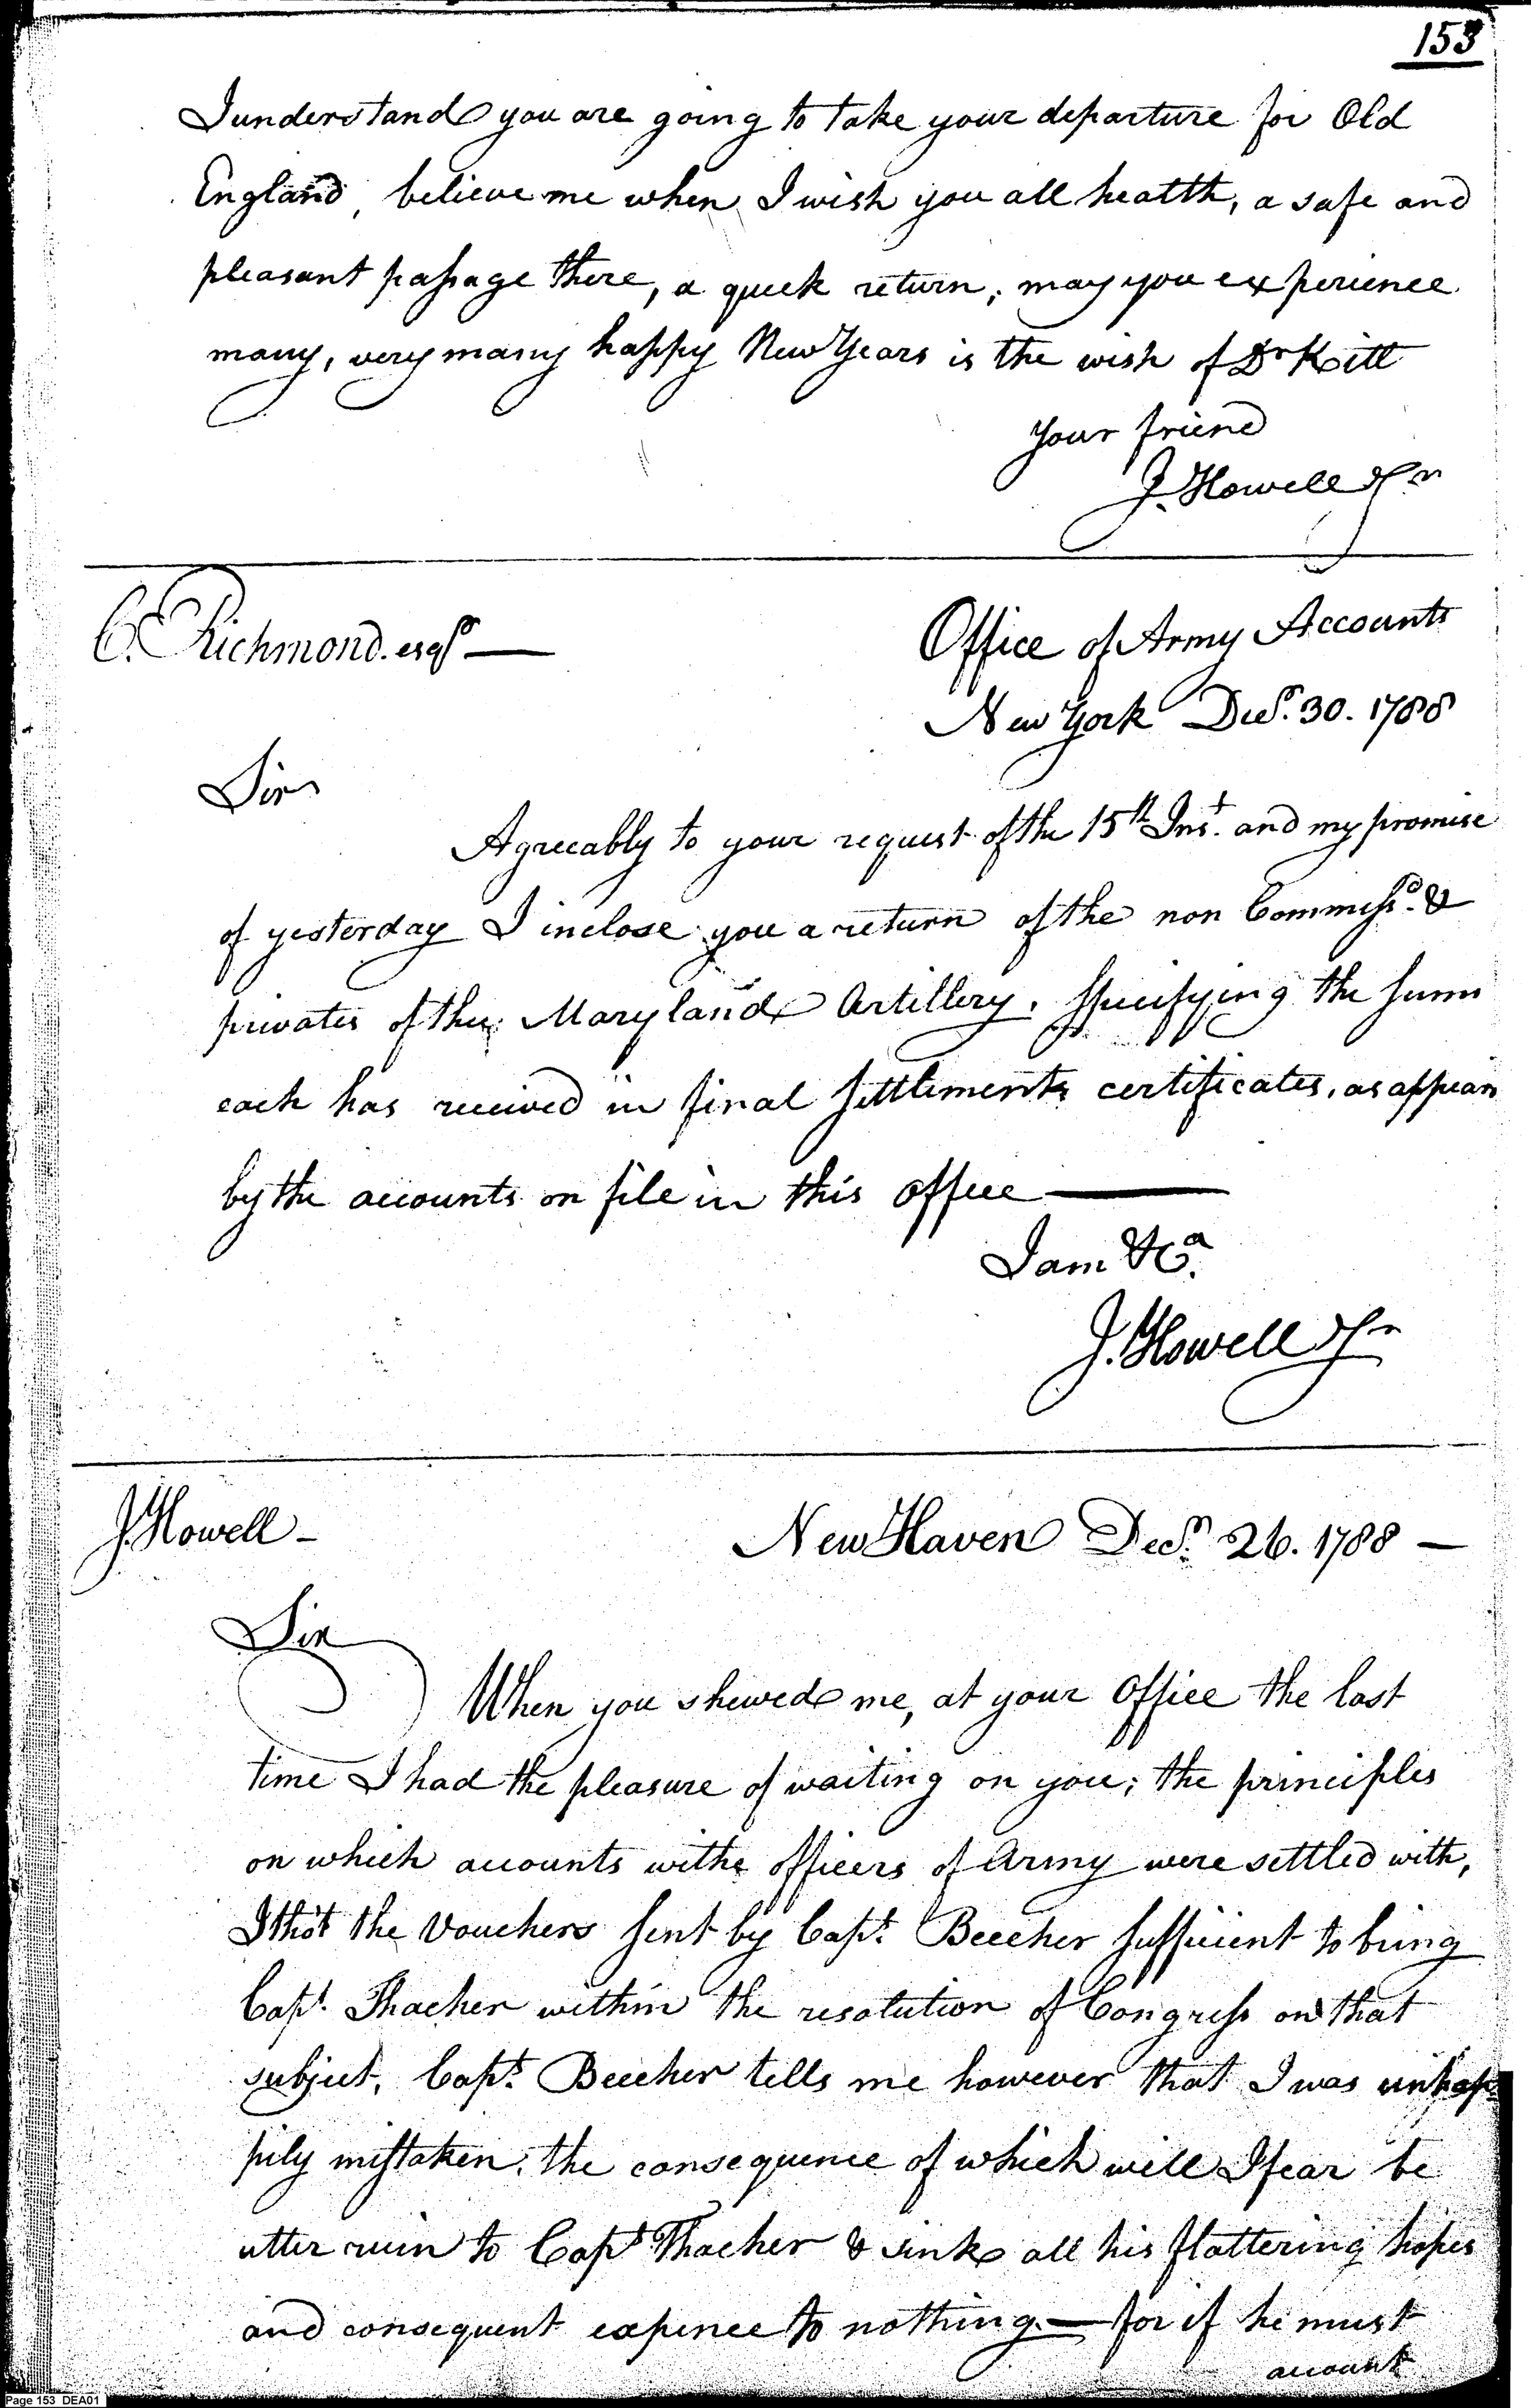 153
I understand you are going to take your departure for Old
England, believe me when I wish you all heatth, a safe and
pleasant passage there, a quick return, may you experience
many, very many happy New Years is the wish of Dr Kitt
Your friend
J. Howell Jr
C. Richmond. esqr —
Office of Army Accounts
New York Decr. 30. 1788
Sir
Agreeably to your request of the 15th Inst. and my promise
of yesterday I inclose you a return of the non Commissd. &
privates of the Maryland Artillery, specifying the sums
each has received in final settlements certificates, as appears
by the accounts on file in this office —
I am &Ca.
J. Howell Jr
J. Howell -
New Haven Decr. 26. 1788 —
Sir
When you shewed me, at your Office the last
time I had the pleasure of waiting on you; the principles
on which accounts withe officers of Army were settled with,
I thot the Vouchers sent by Capt. Beecher sufficient to bring
Capt. Thacher within the resolution of Congress on that
subject, Capt. Beecher tells me however that I was unhap-
pily mistaken, the consequence of which will I fear be
utter ruin to Capt Thacher & sink all his flattering hopes
and consequent expence to nothing. — for if he must
account
Page 153 DEA01